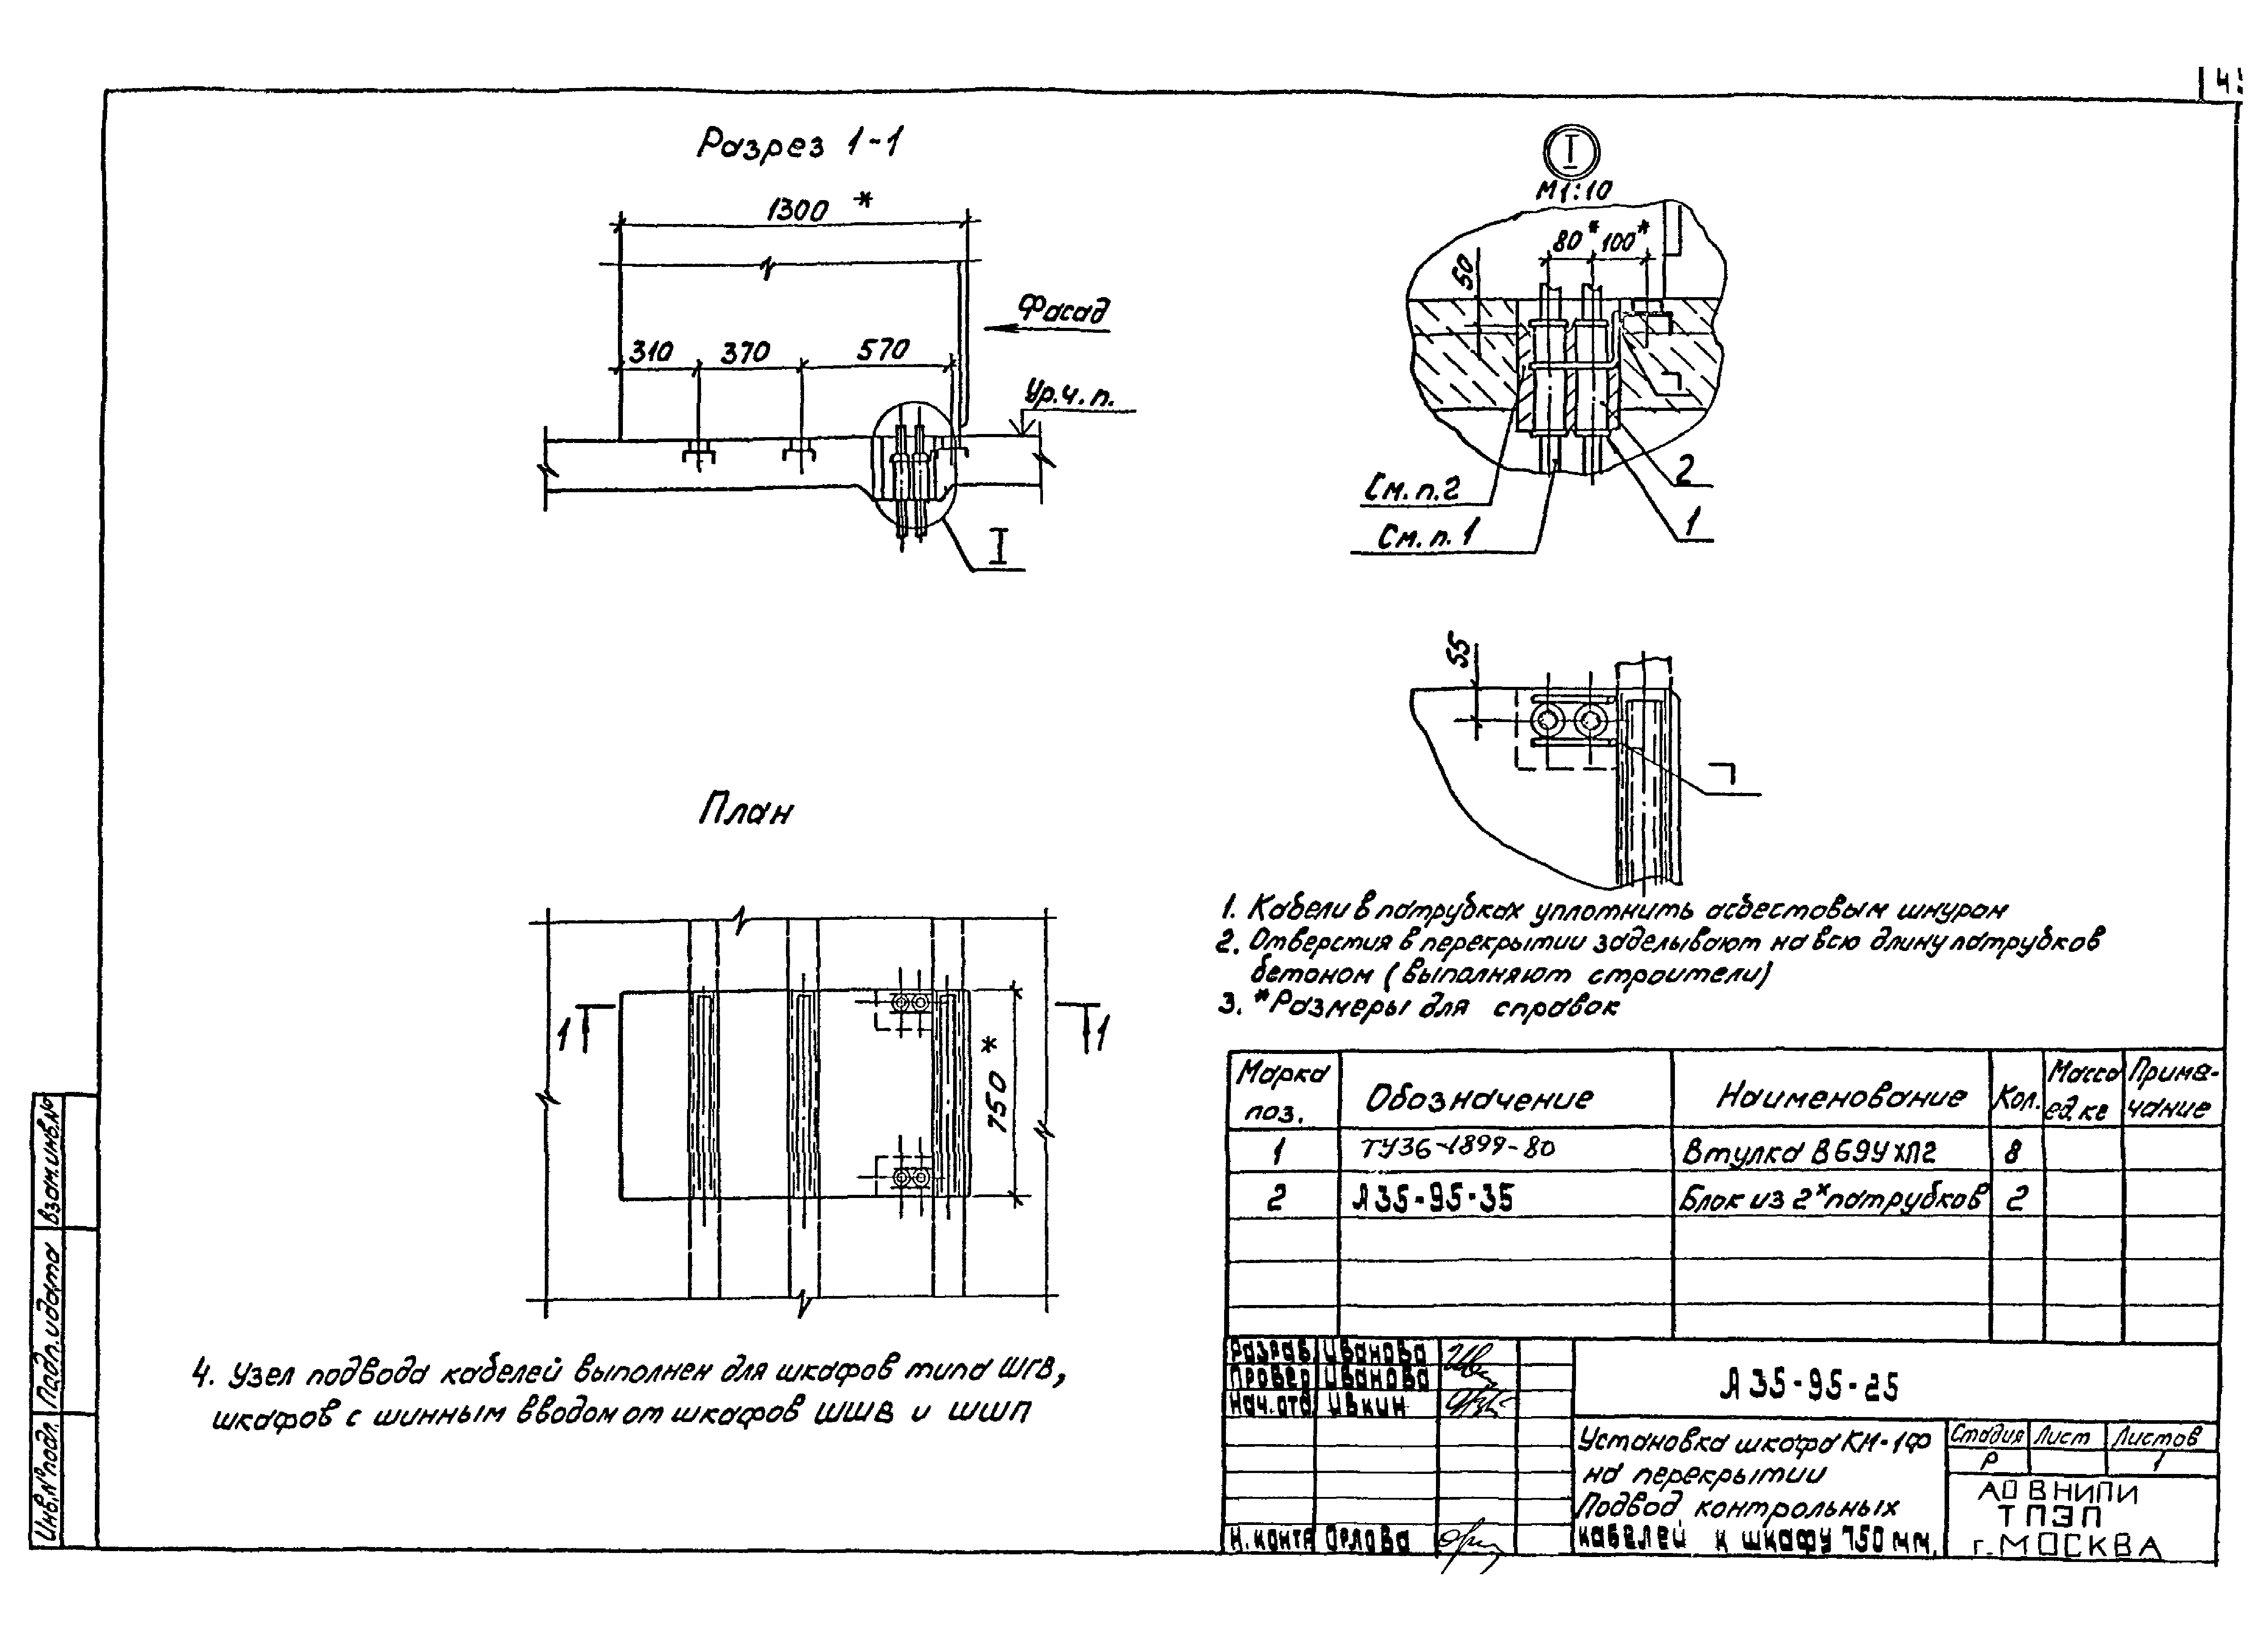 4
Разрез 1-1
1300 *
310 370 570
Фасад
Ур.ч.п.
I
I
М1:10
80* 100*
50
См.п.2
См.п.1
2
1
55
План
1 1
750 *
1. Кабели в патрубках уплотнить асбестовым шнуром
2. Отверстия в перекрытии заделывают на всю длину патрубков
бетоном (выполняют строители)
3. *Размеры для справок
4. Узел подвода кабелей выполнен для шкафов типа ШГВ,
шкафов с шинным вводом от шкафов ШШВ и ШШП
Марка поз. Обозначение Наименование Кол. Масса ед.кг Приме-чание
1 ТУ36-1899-80 Втулка В69УХЛ2 8
2 А35-95-35 Блок из 2х патрубков 2
Разраб. Иванова
Провер Иванова
Нач.отд Ивкин
Н.контр Орлова
А35-95-25
Установка шкафа КМ-1Ф
на перекрытии
Подвод контрольных
кабелей к шкафу 750мм.
Стадия Лист Листов
Р 1
АО ВНИПИ
ТПЭП
г.МОСКВА
Взам.инв.№
Подп. и дата
Инв.№ подл.